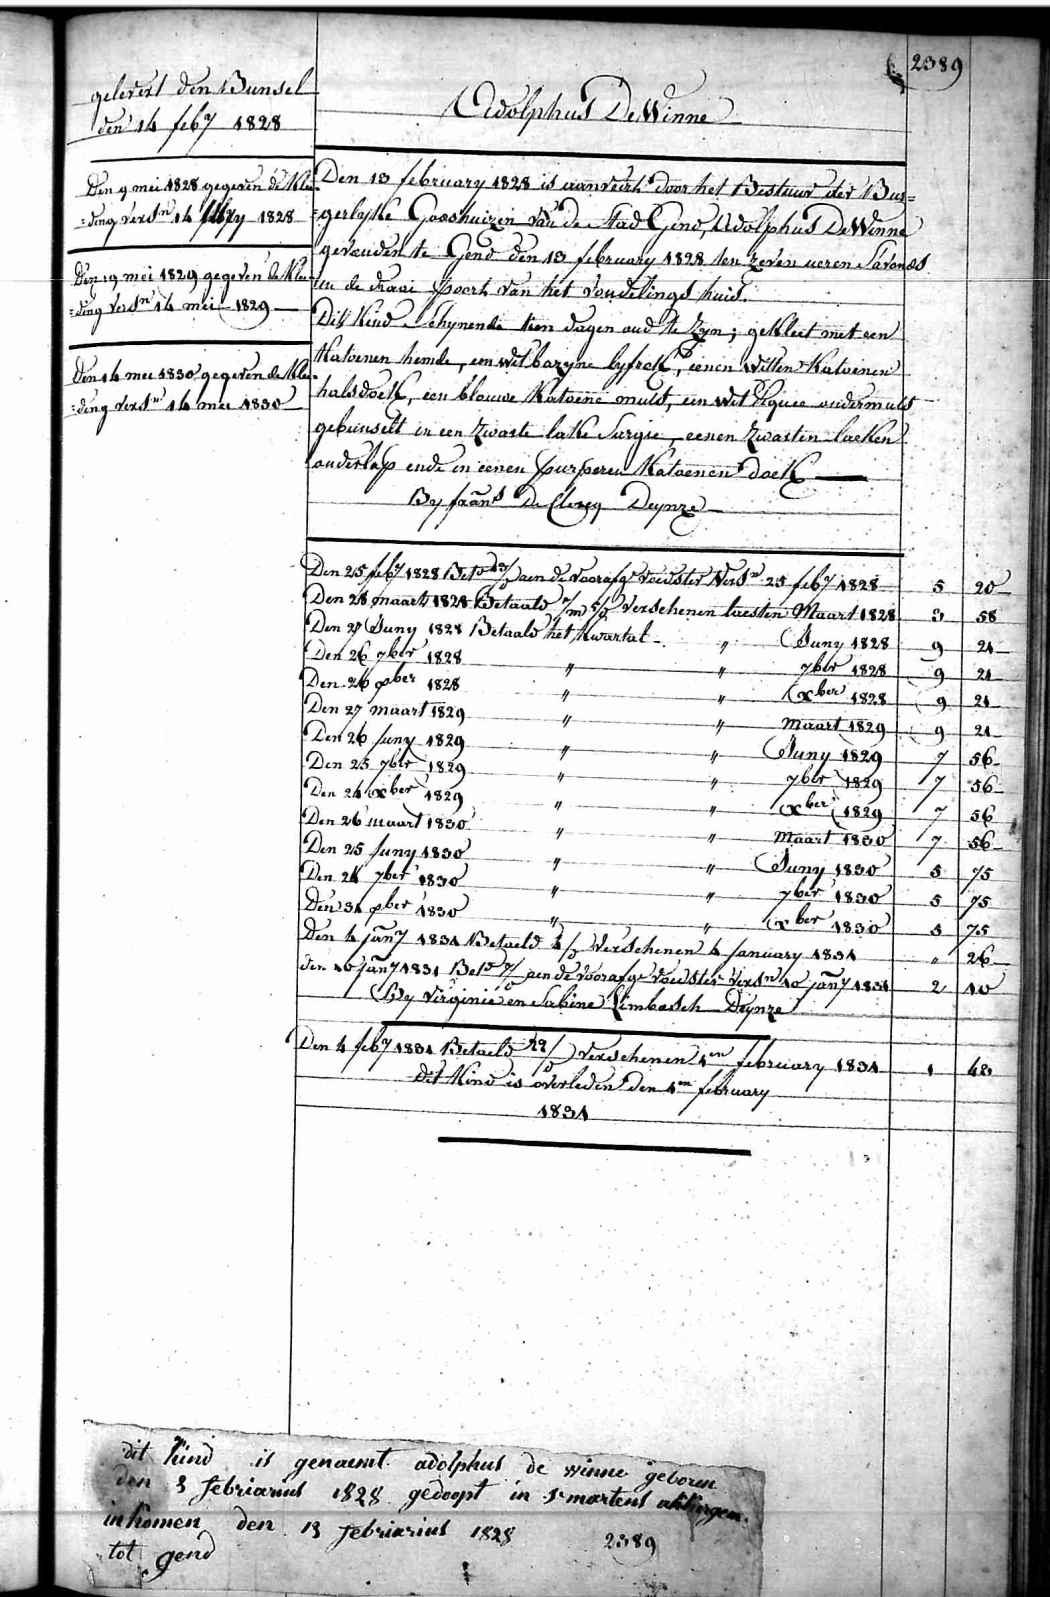 2389
gelevert den Bunsel
den 14 feby 1828
Adolphus De Winne
Den 9 mei 1828 gegeven de Klee
=ding versn 14 1828
Den 19 mei 1829 gegeven de Klee
=ding versn 14 mei 1829
Den 14 mei 1830 gegeven de Klee
=ding versn 14 mei 1830
Den 13 february 1828 is aanveirt door het Bestuur der Bur=
=gerlyke Godshuizen van de Stad Gend, Adolphus De Winne
gevonden te Gend den 13 february 1828 ten zeven ueren savonds
in de draai poort van het vondelings huis.
Dit Kind schynende tien dagen oud te zyn; gekleet met een
Katoenen hemde, een wit bazyne lyfrok, eenen witten Katoenen
halsdoek, een blouwe Katoene muts, een wit piquee ondermuts
gebunselt in een zwarte lake surgie, eenen zwarten laeken
onderlap ende in eenen purperen Katoenen doek
By frans De Clercq Deynze
Den 25 feby 1828 Betd 13/D aen de voorafge voedster versn 25 feby 1828 5 20
Den 28 maart 1828 Betaald 1/m 5/D verschenen laesten Maart 1828 3 58
Den 27 Juny 1828 Betaald het Kwartal " Juny 1828 9 21
Den 26 7ber 1828 " " 7ber 1828 9 21
Den 26 xber 1828 " " xber 1828 9 21
Den 27 maart 1829 " " Maart 1829 9 21
Den 26 Juny 1829 " " Juny 1829 7 56
Den 25 7ber 1829 " " 7ber 1829 7 56
Den 24 xber 1829 " " xber 1829 7 56
Den 26 maart 1830 " " Maart 1830 7 56
Den 25 Juny 1830 " " Juny 1830 5 75
Den 24 7ber 1830 " " 7ber 1830 5 75
Den 31 xber 1830 " " xber 1830 5 75
Den 4 jany 1831 Betaeld 4/D Verschenen 4 january 1831 " 26
den 10 jany 1831 Betd aen de voorafge voedster versn 10 jany 1831 2 10
By Virginie en Sabine Limbosch Deynze
Den 4 feby 1831 Betaeld 22/D verschenen 1en february 1831 1 42
Dit Kind is overleden den 1en february
1831
dit kind is genaemt adolphus de winne geboren
den 3 febriarius 1828 gedoopt in St martens
inkomen den 13 febriarius 1828 2389
tot gend